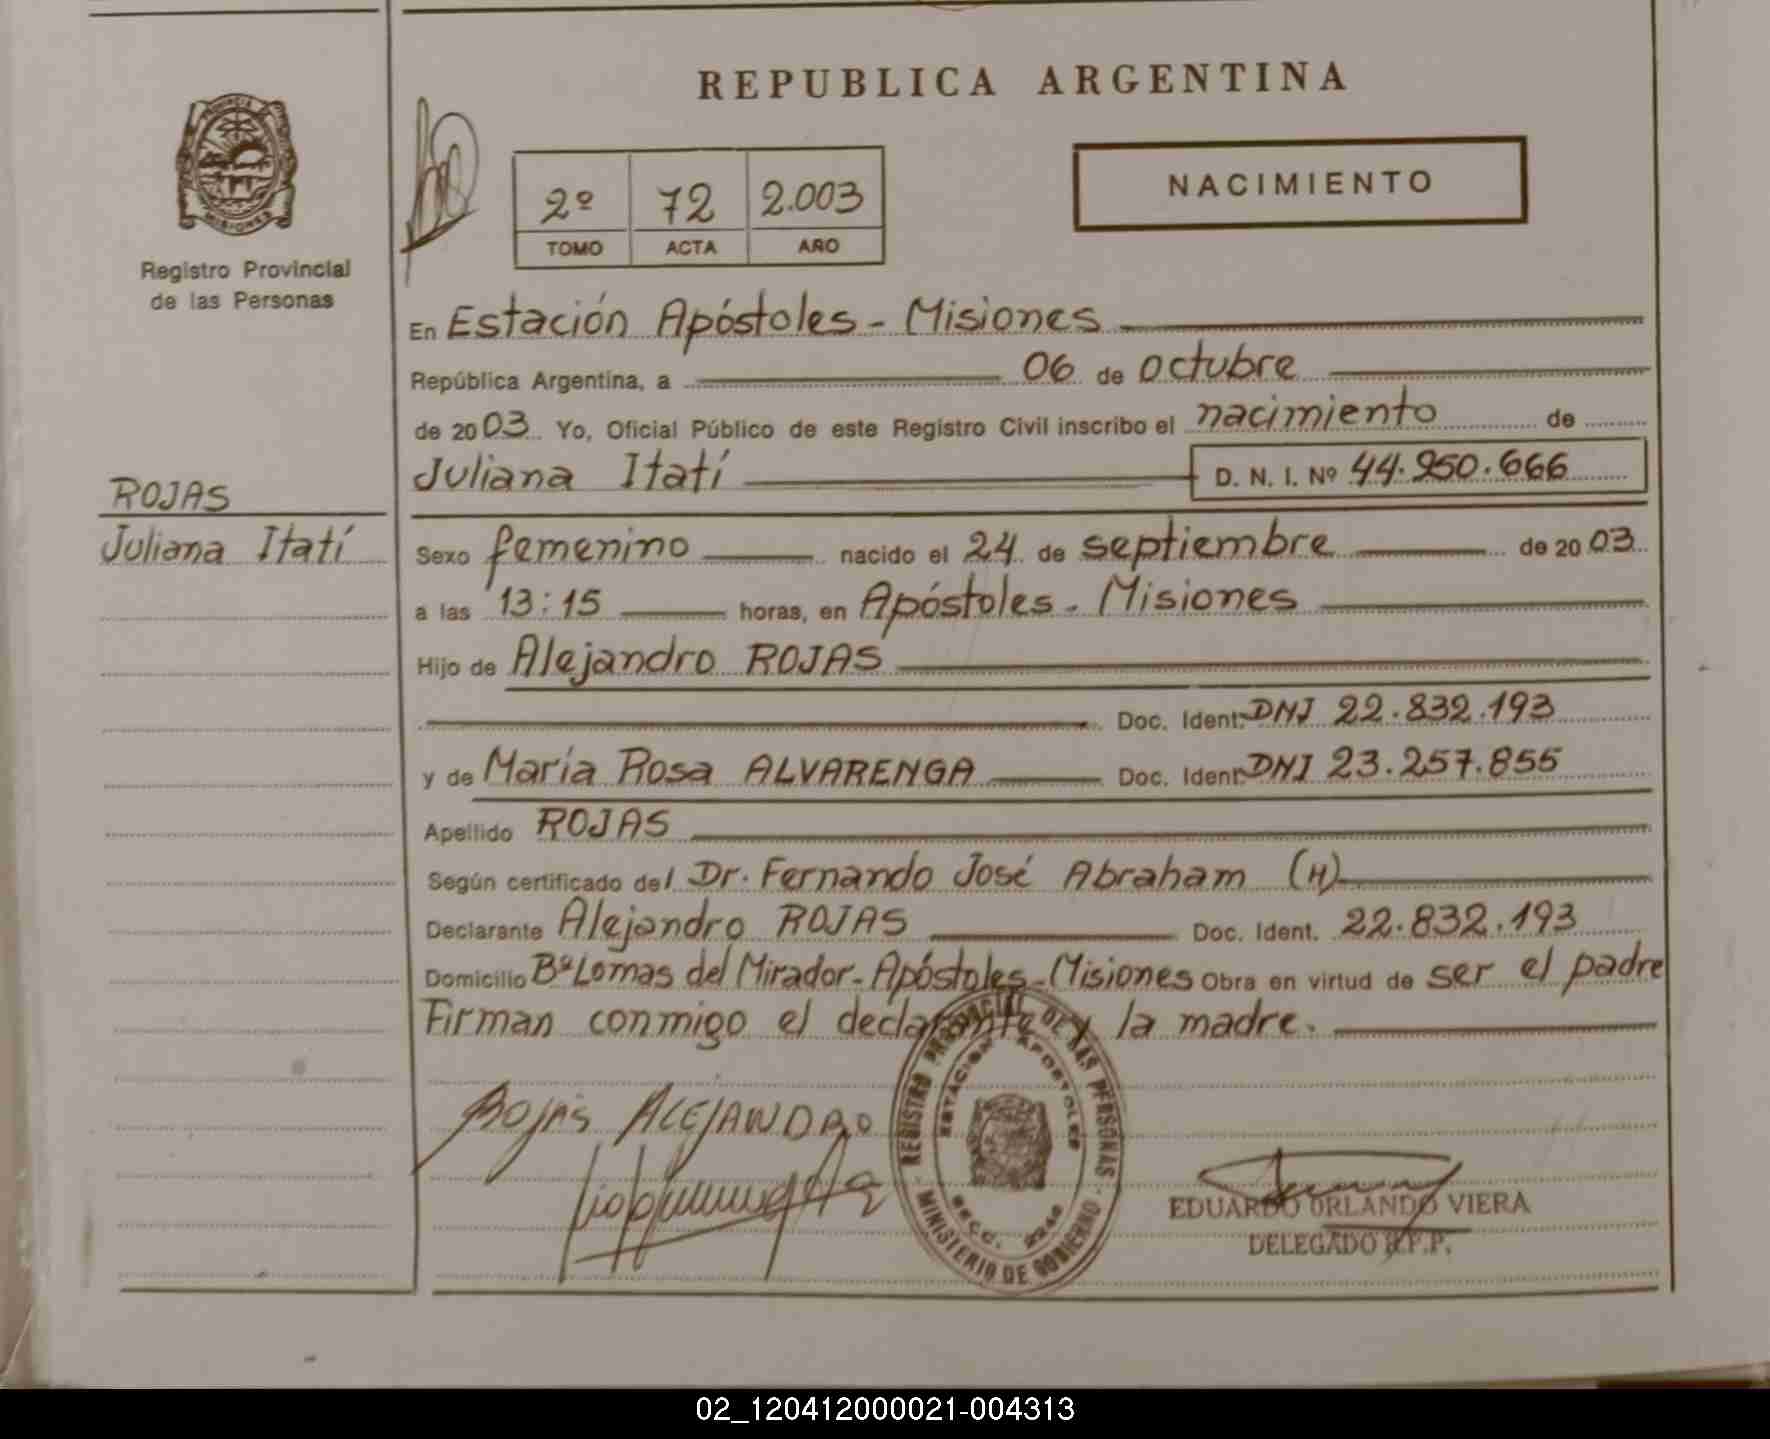 REPUBLICA ARGENTINA
NACIMIENTO
2º 72 2.003
TOMO ACTA AÑO
MISIONES
Registro Provincial
de las Personas
ROJAS
Juliana Itatí
En Estación Apóstoles - Misiones
República Argentina, a 06 de octubre
de 2003 Yo, Oficial Público de este Registro Civil inscribo el nacimiento de
Juliana Itatí D. N. I. Nº 44.950.666
Sexo femenino nacido el 24 de septiembre de 2003
a las 13:15 horas, en Apóstoles - Misiones
Hijo de Alejandro ROJAS
Doc. Ident. DNI 22.832.193
y de María Rosa ALVARENGA Doc. Ident. DNI 23.257.855
Apellido ROJAS
Según certificado del Dr. Fernando José Abraham (H)
Declarante Alejandro ROJAS Doc. Ident. 22.832.193
Domicilio Bº Lomas del Mirador - Apóstoles - Misiones Obra en virtud de ser el padre
Firman conmigo el declarante y la madre.
ROJAS ALEJANDRO
REGISTRO PROVINCIAL DE LAS PERSONAS
ESTACION APOSTOLES
SECC. 2240
MINISTERIO DE GOBIERNO
EDUARDO ORLANDO VIERA
DELEGADO R.P.P.
02_120412000021-004313